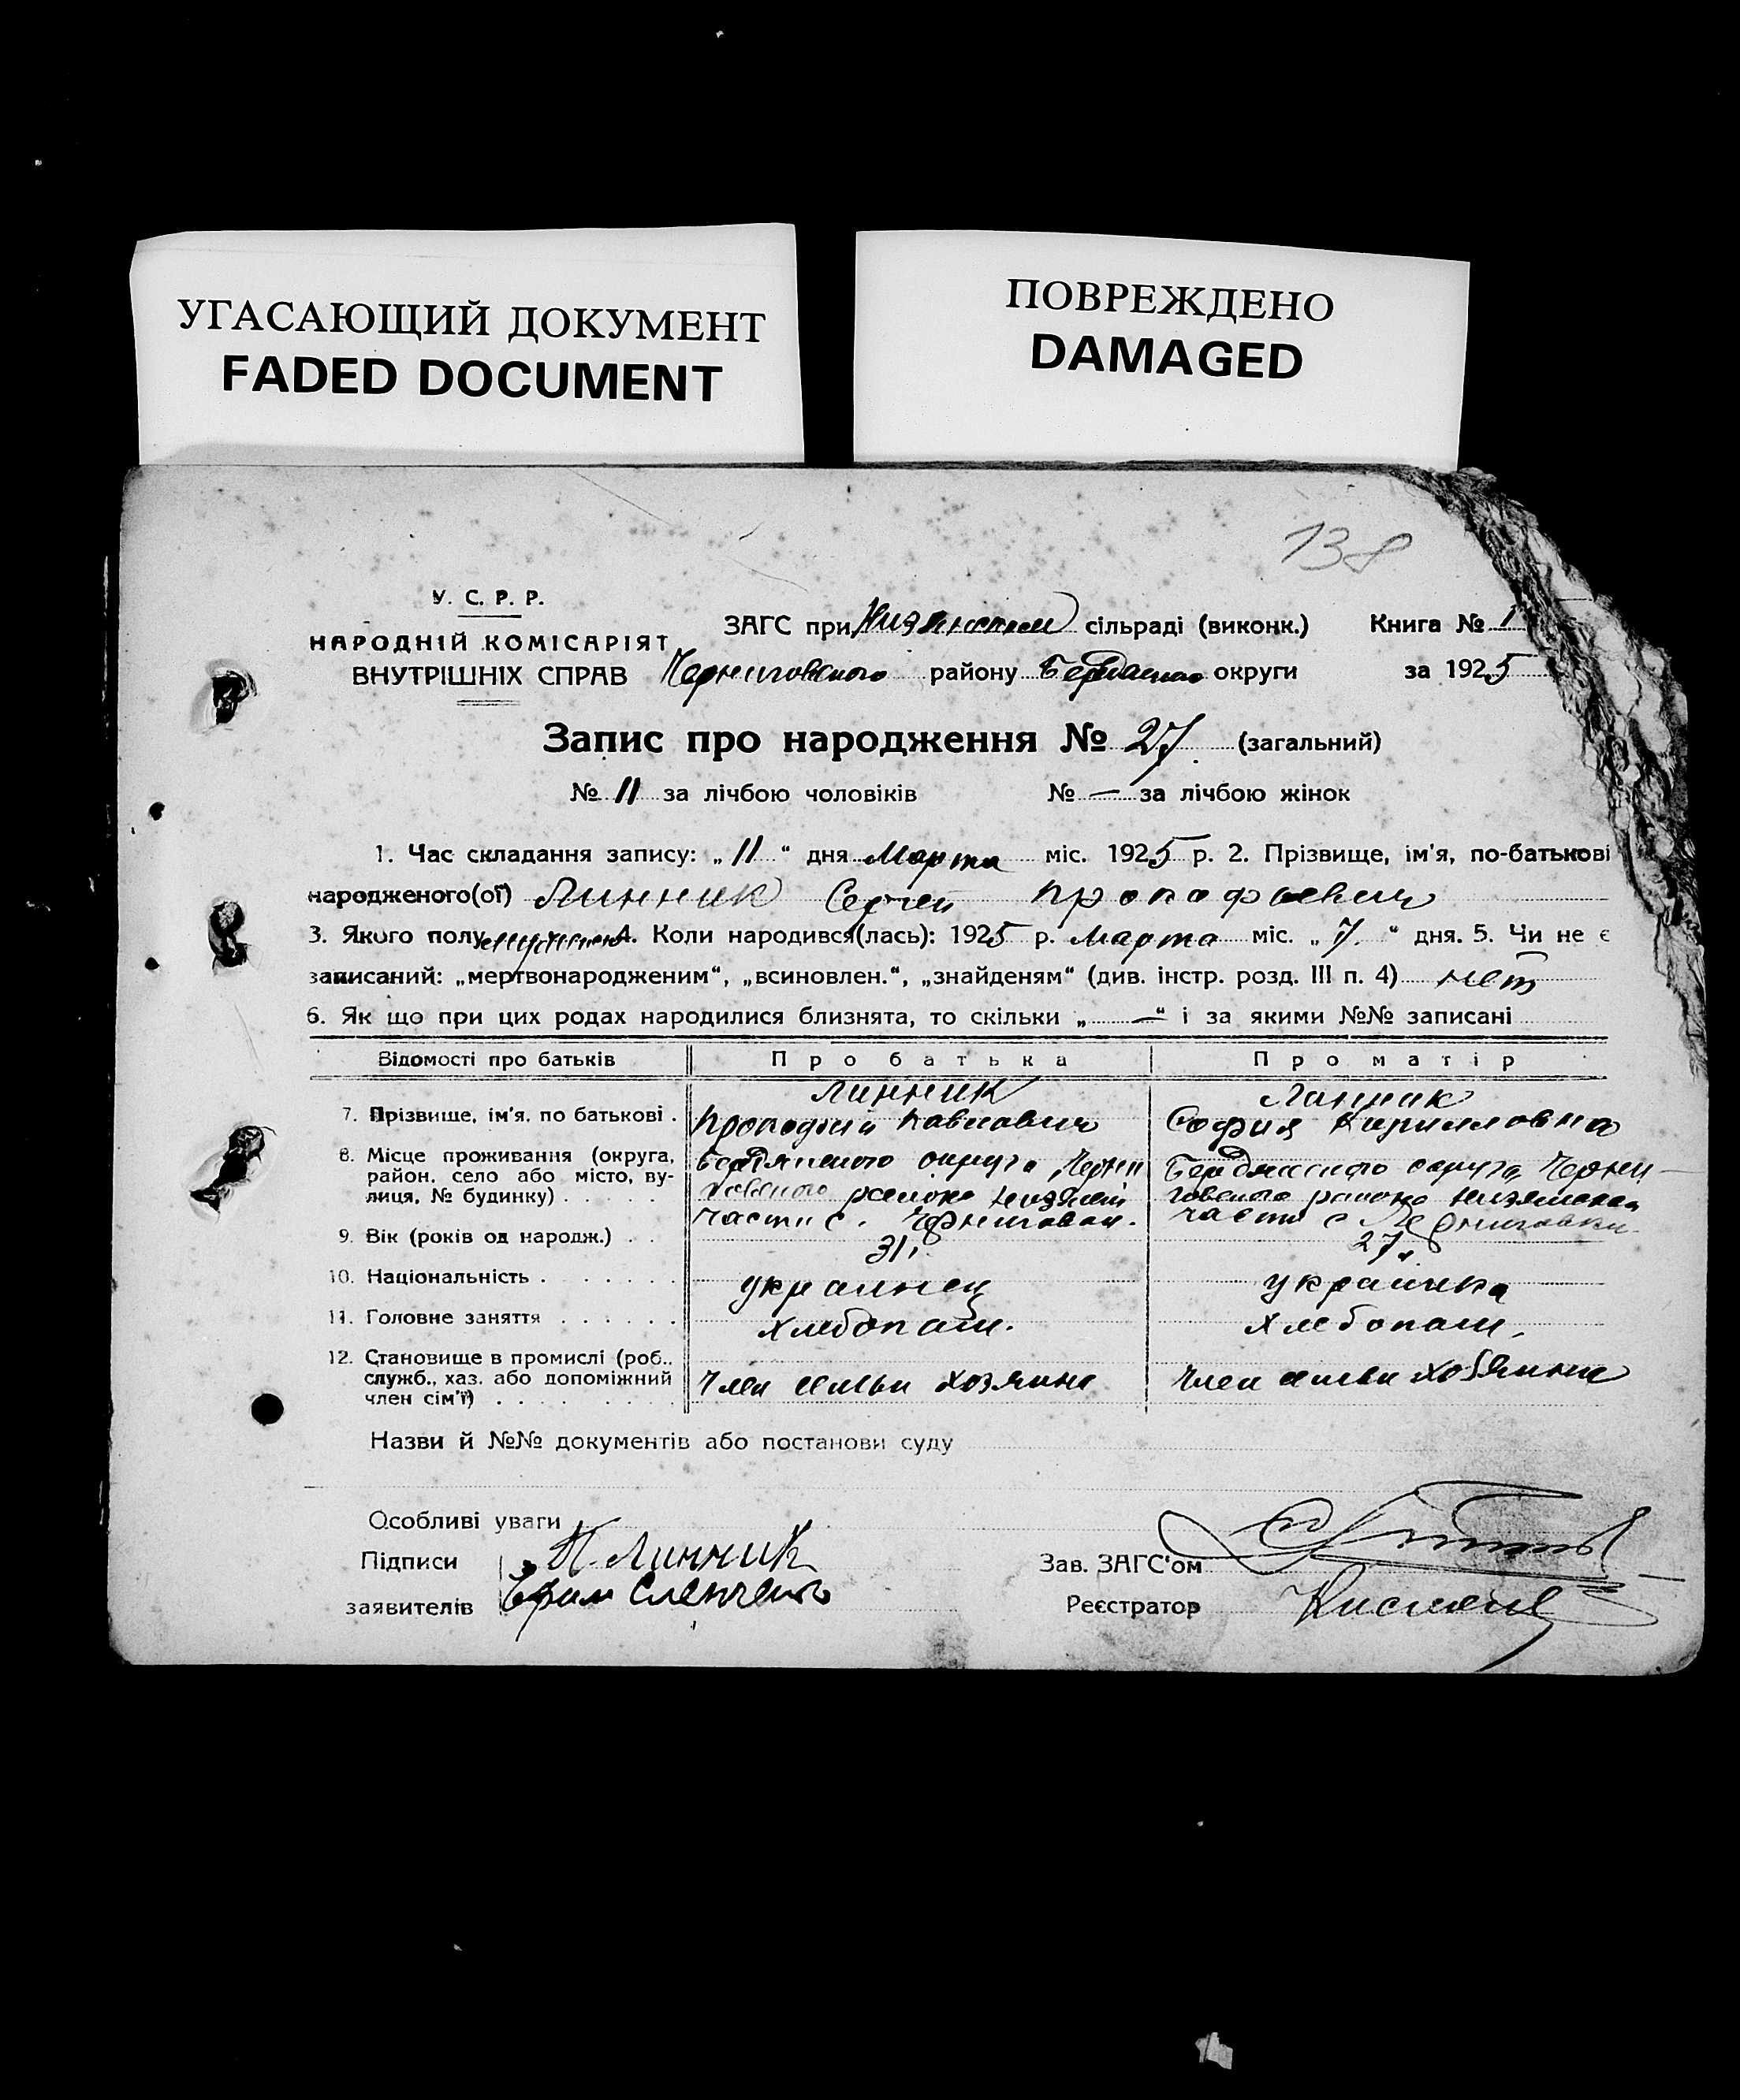 УГАСАЮЩИЙ ДОКУМЕНТ
FADED DOCUMENT
ПОВРЕЖДЕНО
DAMAGED
138
У. С. Р. Р.
НАРОДНІЙ КОМІСАРІЯТ
ВНУТРІШНІХ СПРАВ
ЗАГС при сільраді (виконк.) Книга № 1
Черниговского району Бердянского округи за 1925
Запис про народження № 27 (загальний)
№ 11 за лічбою чоловіків № — за лічбою жінок
1. Час складання запису: „ 11 “ дня Марта міс. 1925 р. 2. Прізвище, ім'я, по-батькові
народженого(ої) Линник Сергей Прокофьевич
3. Якого полу мужского 4. Коли народився(лась): 1925 р. Марта міс. „ 7. “ дня. 5. Чи не є
записаний: „мертвонародженим“, „всиновлен.“, „знайденям“ (див. інстр. розд. III п. 4) нет
6. Як що при цих родах народилися близнята, то скільки „ — “ і за якими №№ записані
Відомості про батьків Про батька Про матір
7. Прізвище, ім'я, по батькові . Линник Прокофий Павлович Линник София Кирилловна
8. Місце проживання (округа, район, село або місто, вулиця, № будинку) . . . . . Бердянского округа, Черниговского района части с. Черниговки. Бердянского округа, Черниговского района части с Черниговки
9. Вік (років од народж.) . . 31 г. 27 г.
10. Національність . . . . . . украинец украинка
11. Головне заняття . . . . . . хлебопаш. хлебопаш.
12. Становище в промислі (роб., служб., хаз. або допоміжний член сім'ї) . . . . . . . . Член семьи хозяина Член семьи хозяина
Назви й №№ документів або постанови суду
Особливі уваги
Підписи П. Линник Зав. ЗАГС'ом
заявителів Ефим Реєстратор